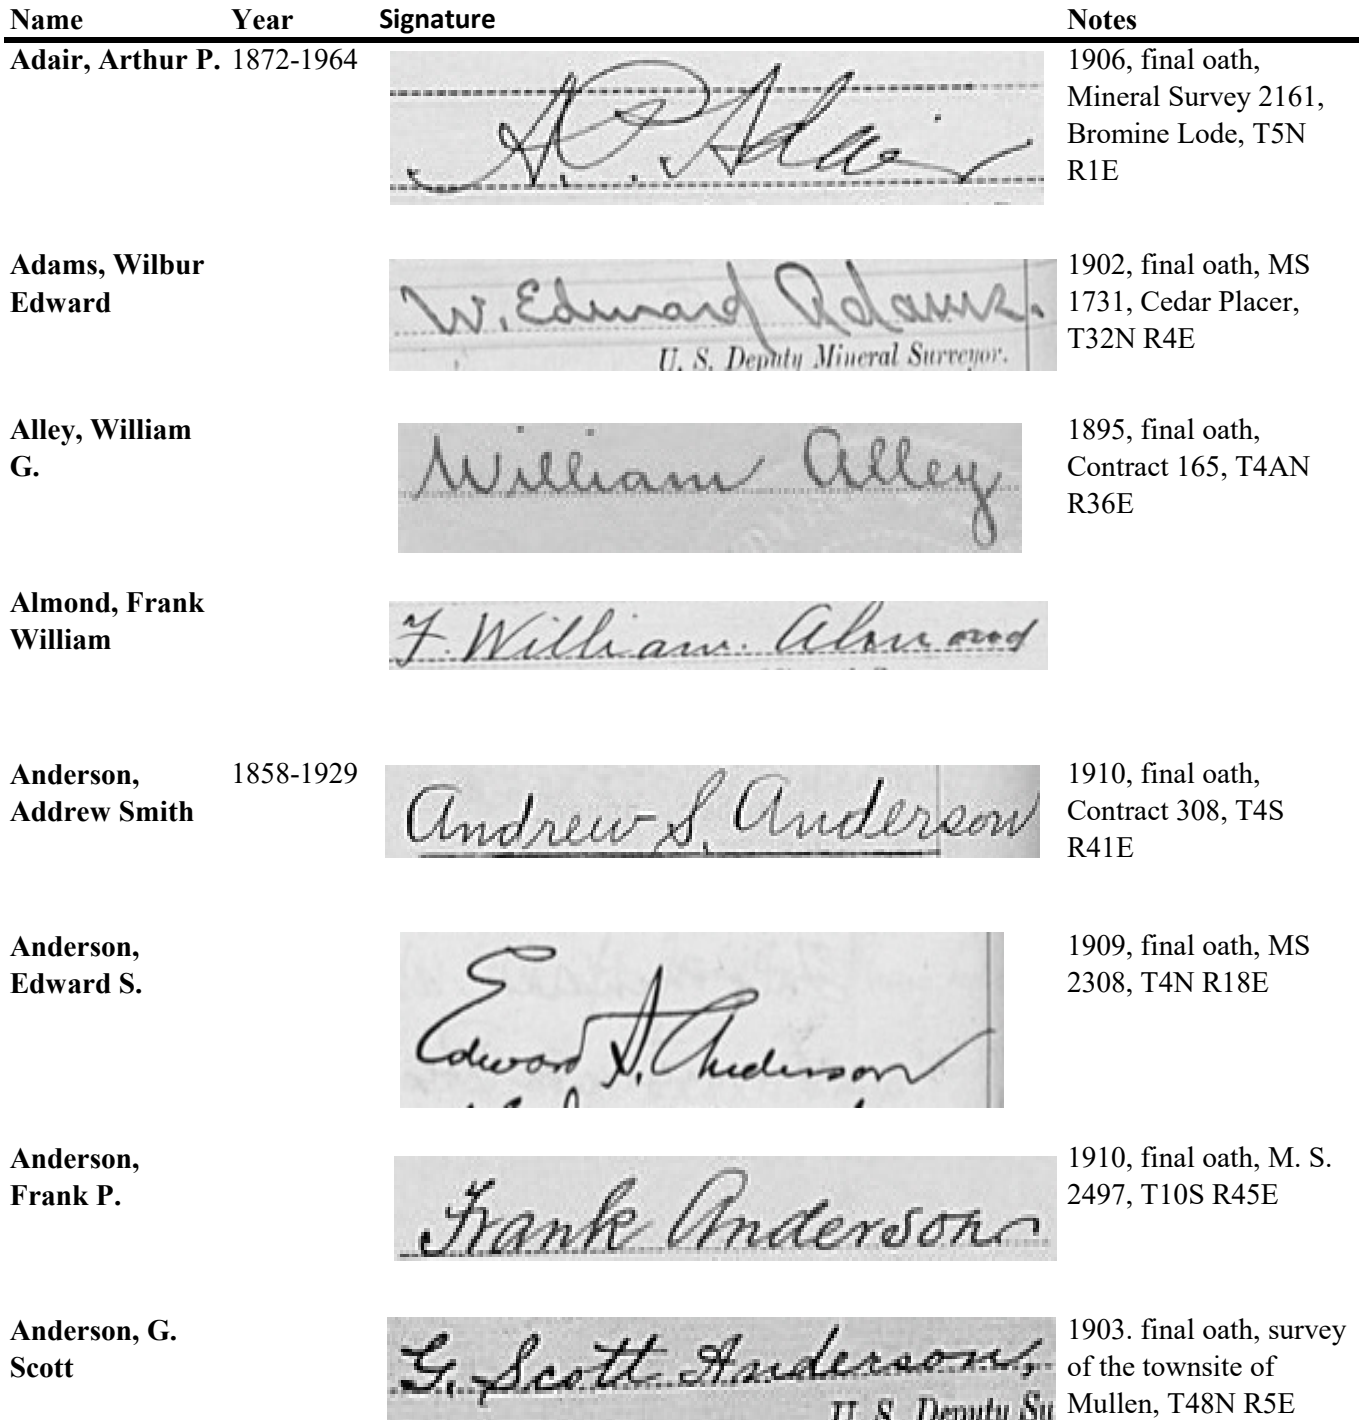 Name Year Signature Notes
Adair, Arthur P. 1872-1964
A.P. Adair
1906, final oath,
Mineral Survey 2161,
Bromine Lode, T5N
R1E
Adams, Wilbur
Edward
W. Edward Adams.
U. S. Deputy Mineral Surveyor.
1902, final oath, MS
1731, Cedar Placer,
T32N R4E
Alley, William
G.
William Alley
1895, final oath,
Contract 165, T4AN
R36E
Almond, Frank
William
F. William Almond
Anderson,
Addrew Smith
1858-1929
Andrew S. Anderson
1910, final oath,
Contract 308, T4S
R41E
Anderson,
Edward S.
Edward S. Anderson
1909, final oath, MS
2308, T4N R18E
Anderson,
Frank P.
Frank Anderson
1910, final oath, M. S.
2497, T10S R45E
Anderson, G.
Scott
G. Scott Anderson,
U. S. Deputy Su
1903. final oath, survey
of the townsite of
Mullen, T48N R5E